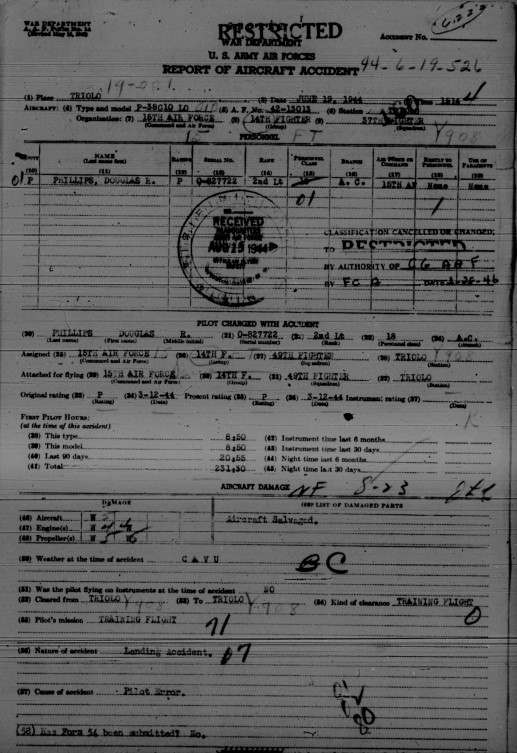 WAR DEPARTMENT
A. A. F. Form No. 14
RESTRICTED
WAR DEPARTMENT
ACCIDENT NO.
U. S. ARMY AIR FORCES
REPORT OF AIRCRAFT ACCIDENT 44-6-19-526
(1) Place TRIOLO (2) Date JUNE 19, 1944 (3) Time 1514
AIRCRAFT: (4) Type and model P-38G10 LO (5) A. F. No. 42-13013 (6) Station TRIOLO
Organization: (7) 15TH AIR FORCE (8) 14TH FIGHTER (9) 37TH FIGHTER
(Command and Air Force) (Group) (Squadron)
PERSONNEL
DUTY NAME (Last name first) RATING SERIAL NO. RANK PERSONNEL CLASS BRANCH AIR FORCE OR COMMAND RESULT TO PERSONNEL USE OF PARACHUTE
(10) (11) (12) (13) (14) (15) (16) (17) (18) (19)
01 P PHILLIPS, DOUGLAS R. P O-827722 2nd Lt 18 A. C. 15TH AF None None
01 1
RECEIVED
AUG 15 1944
CLASSIFICATION CANCELLED OR CHANGED
TO RESTRICTED
BY AUTHORITY OF CG AAF
BY DATE
PILOT CHARGED WITH ACCIDENT
(20) PHILLIPS DOUGLAS R. (21) O-827722 (22) 2nd Lt (23) 18 (24) A.C.
(Last name) (First name) (Middle initial) (Serial number) (Rank) (Personnel class) (Branch)
Assigned (25) 15TH AIR FORCE (26) 14TH F. (27) 49TH FIGHTER (28) TRIOLO
(Command and Air Force) (Group) (Squadron) (Station)
Attached for flying (29) 15TH AIR FORCE (30) 14TH F. (31) 49TH FIGHTER (32) TRIOLO
(Command and Air Force) (Group) (Squadron) (Station)
Original rating (33) P (34) 3-12-44 Present rating (35) P (36) 3-12-44 Instrument rating (37)
(Rating) (Date) (Rating) (Date) (Date)
FIRST PILOT HOURS:
(at the time of this accident)
(38) This type 8:50 (42) Instrument time last 6 months
(39) This model 8:50 (43) Instrument time last 30 days
(40) Last 90 days 20:55 (44) Night time last 6 months
(41) Total 231:30 (45) Night time last 30 days
AIRCRAFT DAMAGE
DAMAGE (49) LIST OF DAMAGED PARTS
(46) Aircraft W Aircraft Salvaged.
(47) Engine(s) W W
(48) Propeller(s) W W
(50) Weather at the time of accident C A V U
BC
(51) Was the pilot flying on instruments at the time of accident NO
(52) Cleared from TRIOLO (53) To TRIOLO (54) Kind of clearance TRAINING FLIGHT
(55) Pilot's mission TRAINING FLIGHT 71 0
(56) Nature of accident Landing Accident. 07
(57) Cause of accident Pilot Error.
(58) Has Form 54 been submitted? No.